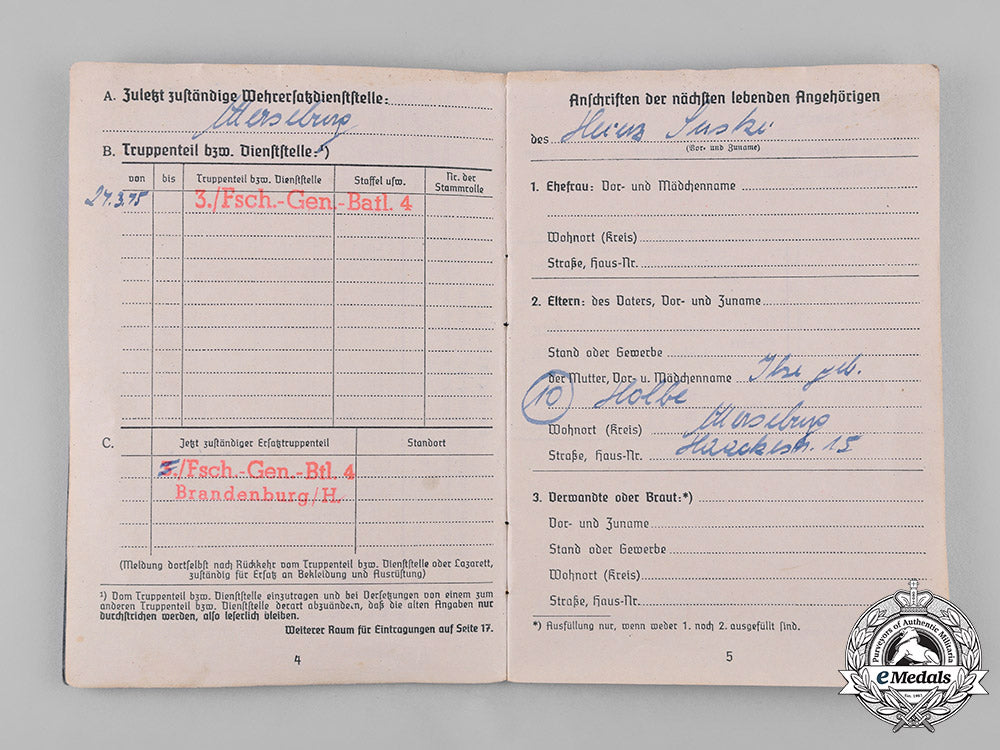 A. Zuletzt zuständige Wehrersatzdienststelle:
Merseburg
B. Truppenteil bzw. Dienststelle:¹)
von bis Truppenteil bzw. Dienststelle Staffel usw. Nr. der Stammrolle
24.3.45 3./Fsch.-Gen.-Batl. 4
C. Jetzt zuständiger Ersatztruppenteil Standort
3./Fsch.-Gen.-Btl. 4
Brandenburg/H.
(Meldung dortselbst nach Rückkehr vom Truppenteil bzw. Dienststelle oder Lazarett,
zuständig für Ersatz an Bekleidung und Ausrüstung)
¹) Vom Truppenteil bzw. Dienststelle einzutragen und bei Versetzungen von einem zum
anderen Truppenteil bzw. Dienststelle derart abzuändern, daß die alten Angaben nur
durchstrichen werden, also leserlich bleiben.
Weiterer Raum für Eintragungen auf Seite 17.
4
Anschriften der nächsten lebenden Angehörigen
des Heinz Suske
(Vor- und Zuname)
1. Ehefrau: Vor- und Mädchenname
Wohnort (Kreis)
Straße, Haus-Nr.
2. Eltern: des Vaters, Vor- und Zuname
Stand oder Gewerbe
der Mutter, Vor- u. Mädchenname Ilse geb.
10 Holbe
Wohnort (Kreis) Merseburg
Straße, Haus-Nr. Haackestr. 15
3. Verwandte oder Braut:*)
Vor- und Zuname
Stand oder Gewerbe
Wohnort (Kreis)
Straße, Haus-Nr.
*) Ausfüllung nur, wenn weder 1. noch 2. ausgefüllt sind.
5
Purveyors of Authentic Militaria
eMedals